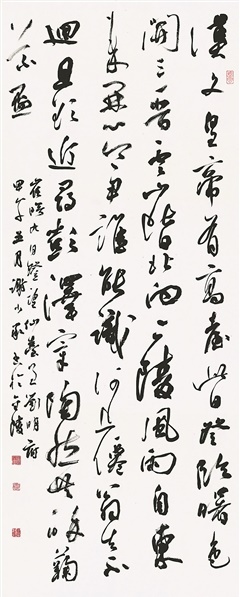 漢文皇帝有高臺此日登臨曙色
開三晉雲山皆北向二陵風雨自東
來關門令尹誰能識河上僊翁去不
迴且欲近尋彭澤宰陶然共醉菊
花盃
崔曙九日登望仙臺呈劉明府
甲午五月謝少承書於金陵